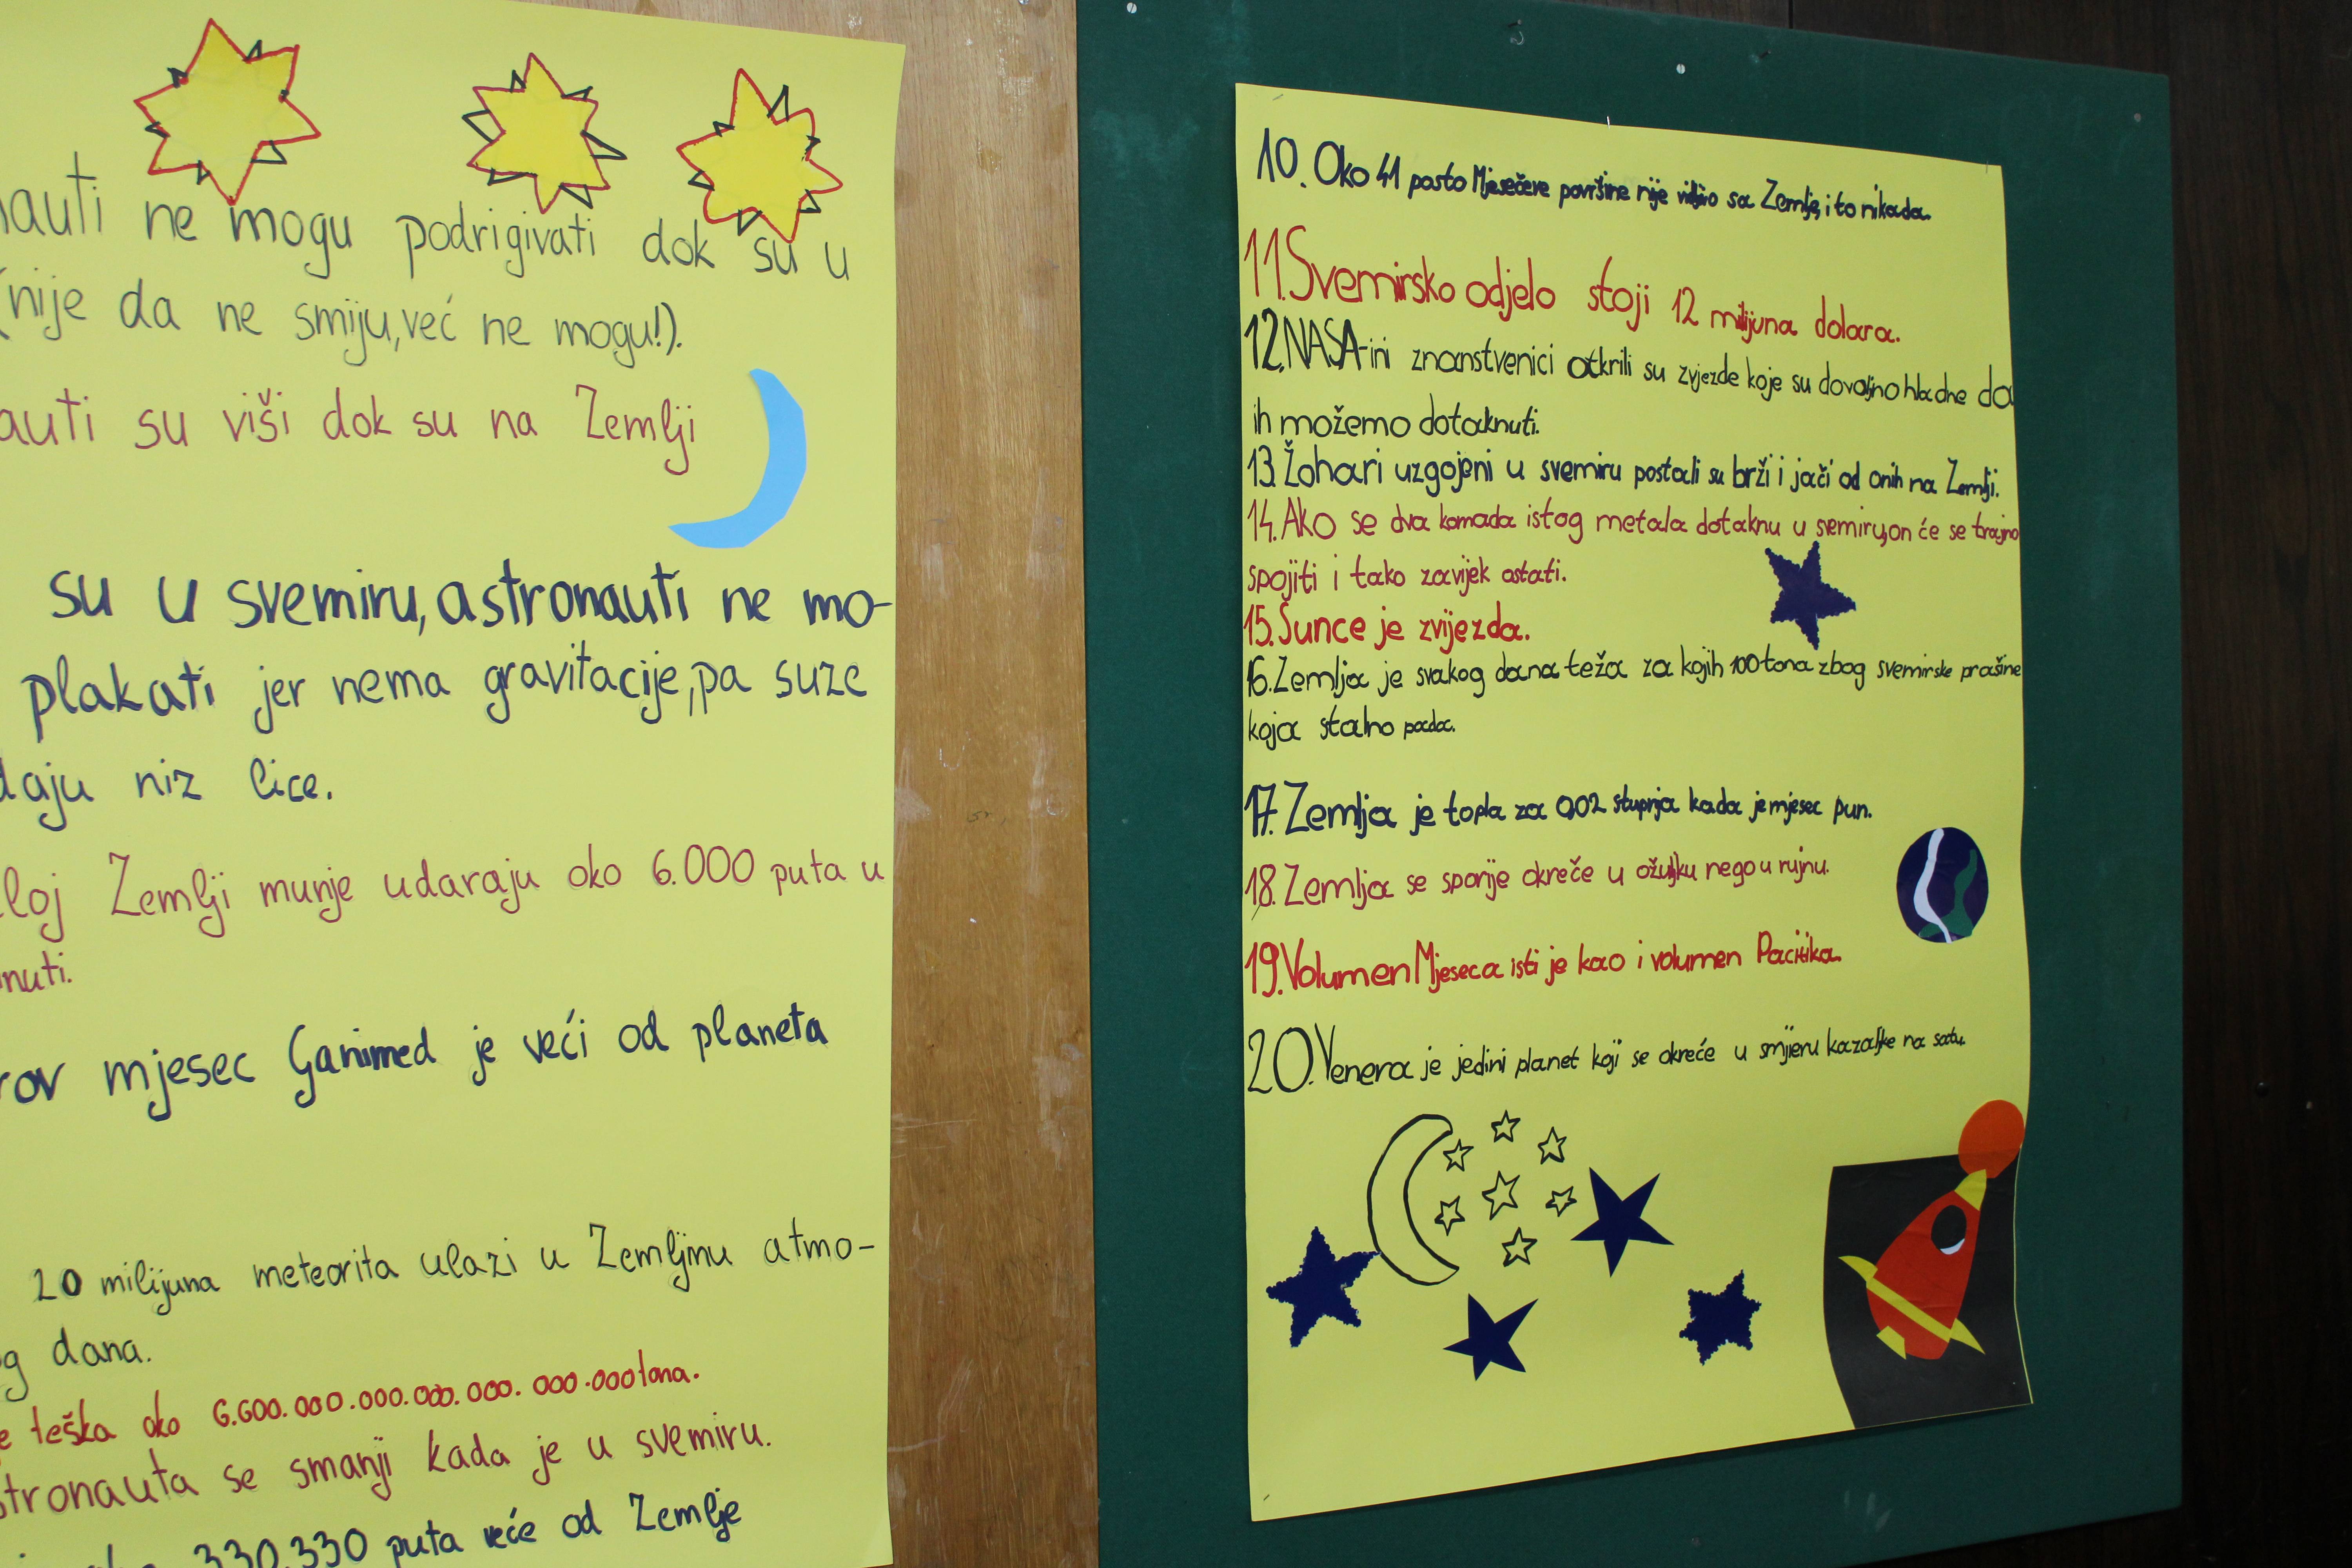 nauti ne mogu podrigivati dok su u
(nije da ne smiju, već ne mogu!).
auti su viši dok su na Zemlji
su u svemiru, astronauti ne mo-
plakati jer nema gravitacije, pa suze
daju niz lice.
loj Zemlji munje udaraju oko 6.000 puta u
nuti.
rov mjesec Ganimed je veći od planeta
20 milijuna meteorita ulazi u Zemljinu atmo-
og dana.
e teška oko 6.600.000.000.000.000.000.000 tona.
stronauta se smanji kada je u svemiru.
330.330 puta veće od Zemlje
10. Oko 41 posto Mjesečeve površine nije vidljivo sa Zemlje, i to nikada.
11. Svemirsko odjelo stoji 12 milijuna dolara.
12. NASA-ini znanstvenici otkrili su zvjezde koje su dovoljno hladne da
ih možemo dotaknuti.
13. Žohari uzgojeni u svemiru postali su brži i jači od onih na Zemlji.
14. Ako se dva komada istog metala dotaknu u svemiru, on će se trajno
spojiti i tako zavijek ostati.
15. Sunce je zvijezda.
16. Zemlja je svakog dana teža za kojih 100 tona zbog svemirske prašine
koja stalno pada.
17. Zemlja je topla za 0,02 stupnja kada je mjesec pun.
18. Zemlja se sporije okreče u ožujku nego u rujnu.
19. Volumen Mjeseca isti je kao i volumen Pacifika.
20. Venera je jedini planet koji se okreće u smjeru kazaljke na satu.